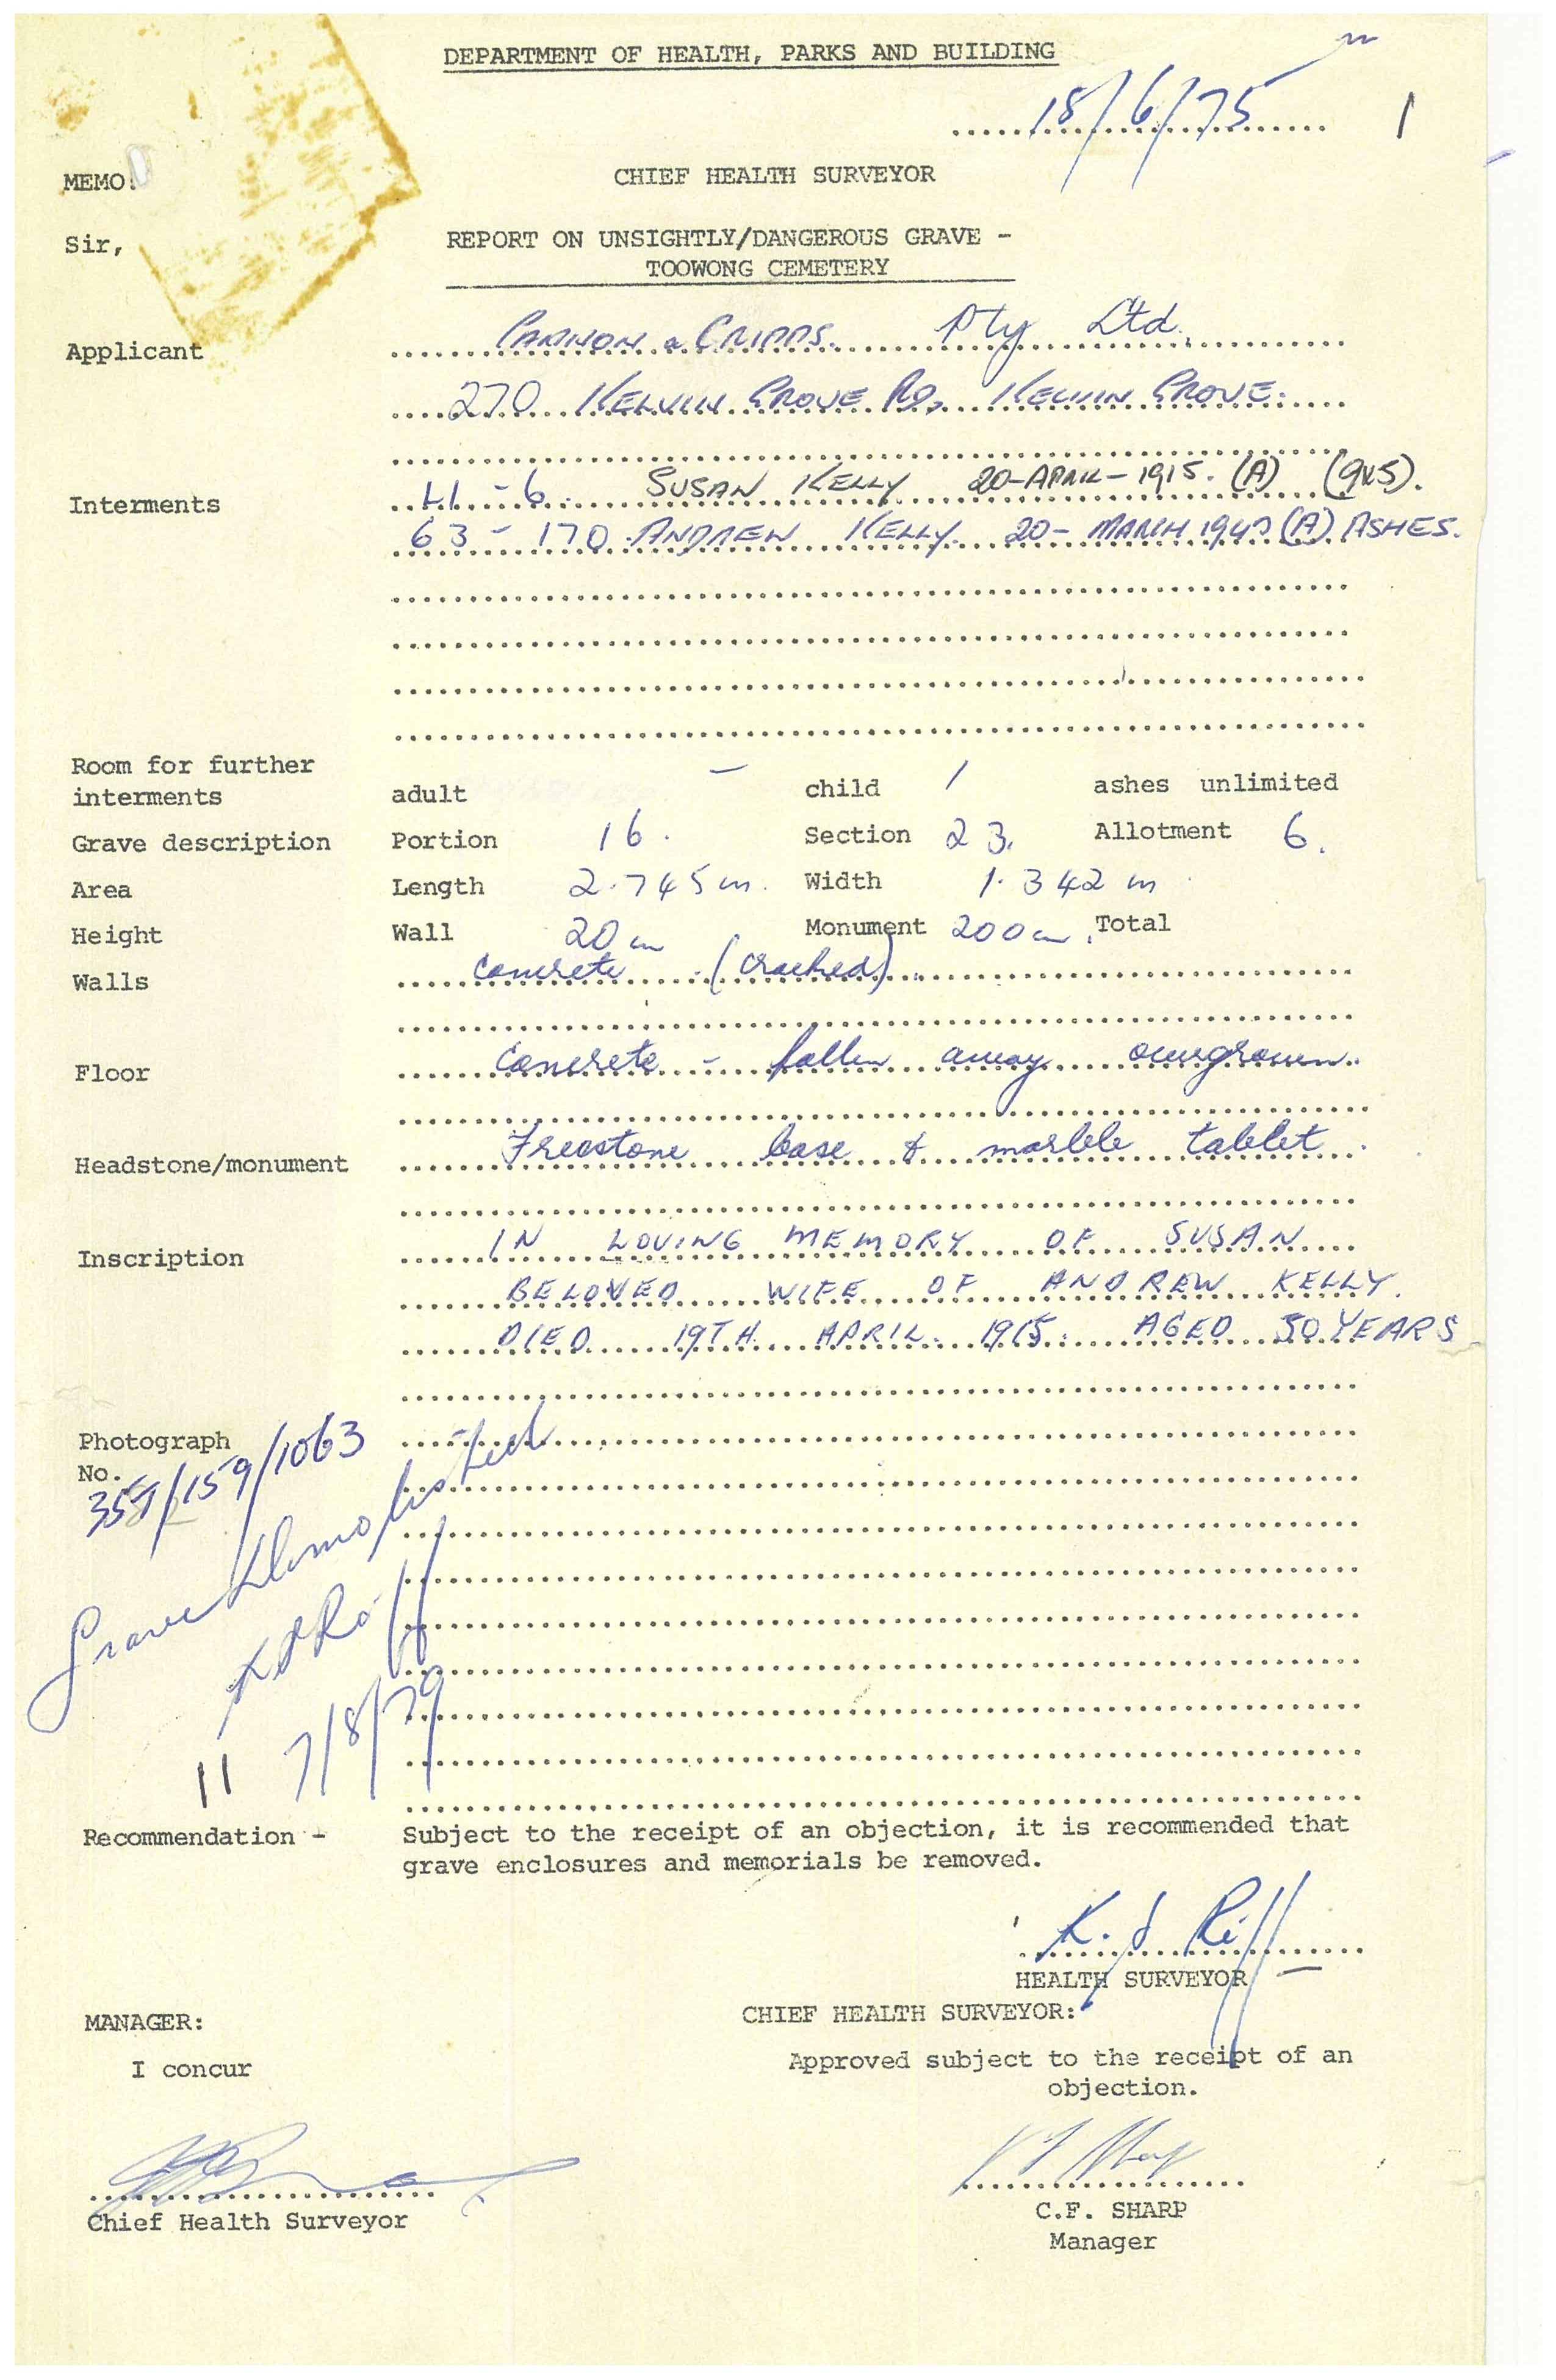 DEPARTMENT OF HEALTH, PARKS AND BUILDING
18/6/75
1
MEMO:
CHIEF HEALTH SURVEYOR
Sir,
REPORT ON UNSIGHTLY/DANGEROUS GRAVE -
TOOWONG CEMETERY
Applicant CANNON & CRIPPS. Pty Ltd.
270 KELVIN GROVE RD, KELVIN GROVE.
Interments 41-6. SUSAN KELLY 20-APRIL-1915. (A) (9x5).
63-170 ANDREW KELLY. 20-MARCH (A) ASHES.
Room for further
interments adult – child 1 ashes unlimited
Grave description Portion 16. Section 23. Allotment 6.
Area Length 2.745m. Width 1.342 m
Height Wall 20cm Monument 200cm. Total
Walls Concrete (cracked).
Floor Concrete - fallen away overgrown.
Headstone/monument Freestone base & marble tablet.
Inscription IN LOVING MEMORY OF SUSAN
BELOVED WIFE OF ANDREW KELLY.
DIED 19TH APRIL. 1915. AGED 50 YEARS
Photograph
No.
/159/1063
Grave Demolished
7/8/79
11
Recommendation - Subject to the receipt of an objection, it is recommended that
grave enclosures and memorials be removed.
HEALTH SURVEYOR
MANAGER:
CHIEF HEALTH SURVEYOR:
I concur
Approved subject to the receipt of an
objection.
Chief Health Surveyor
C.F. SHARP
Manager